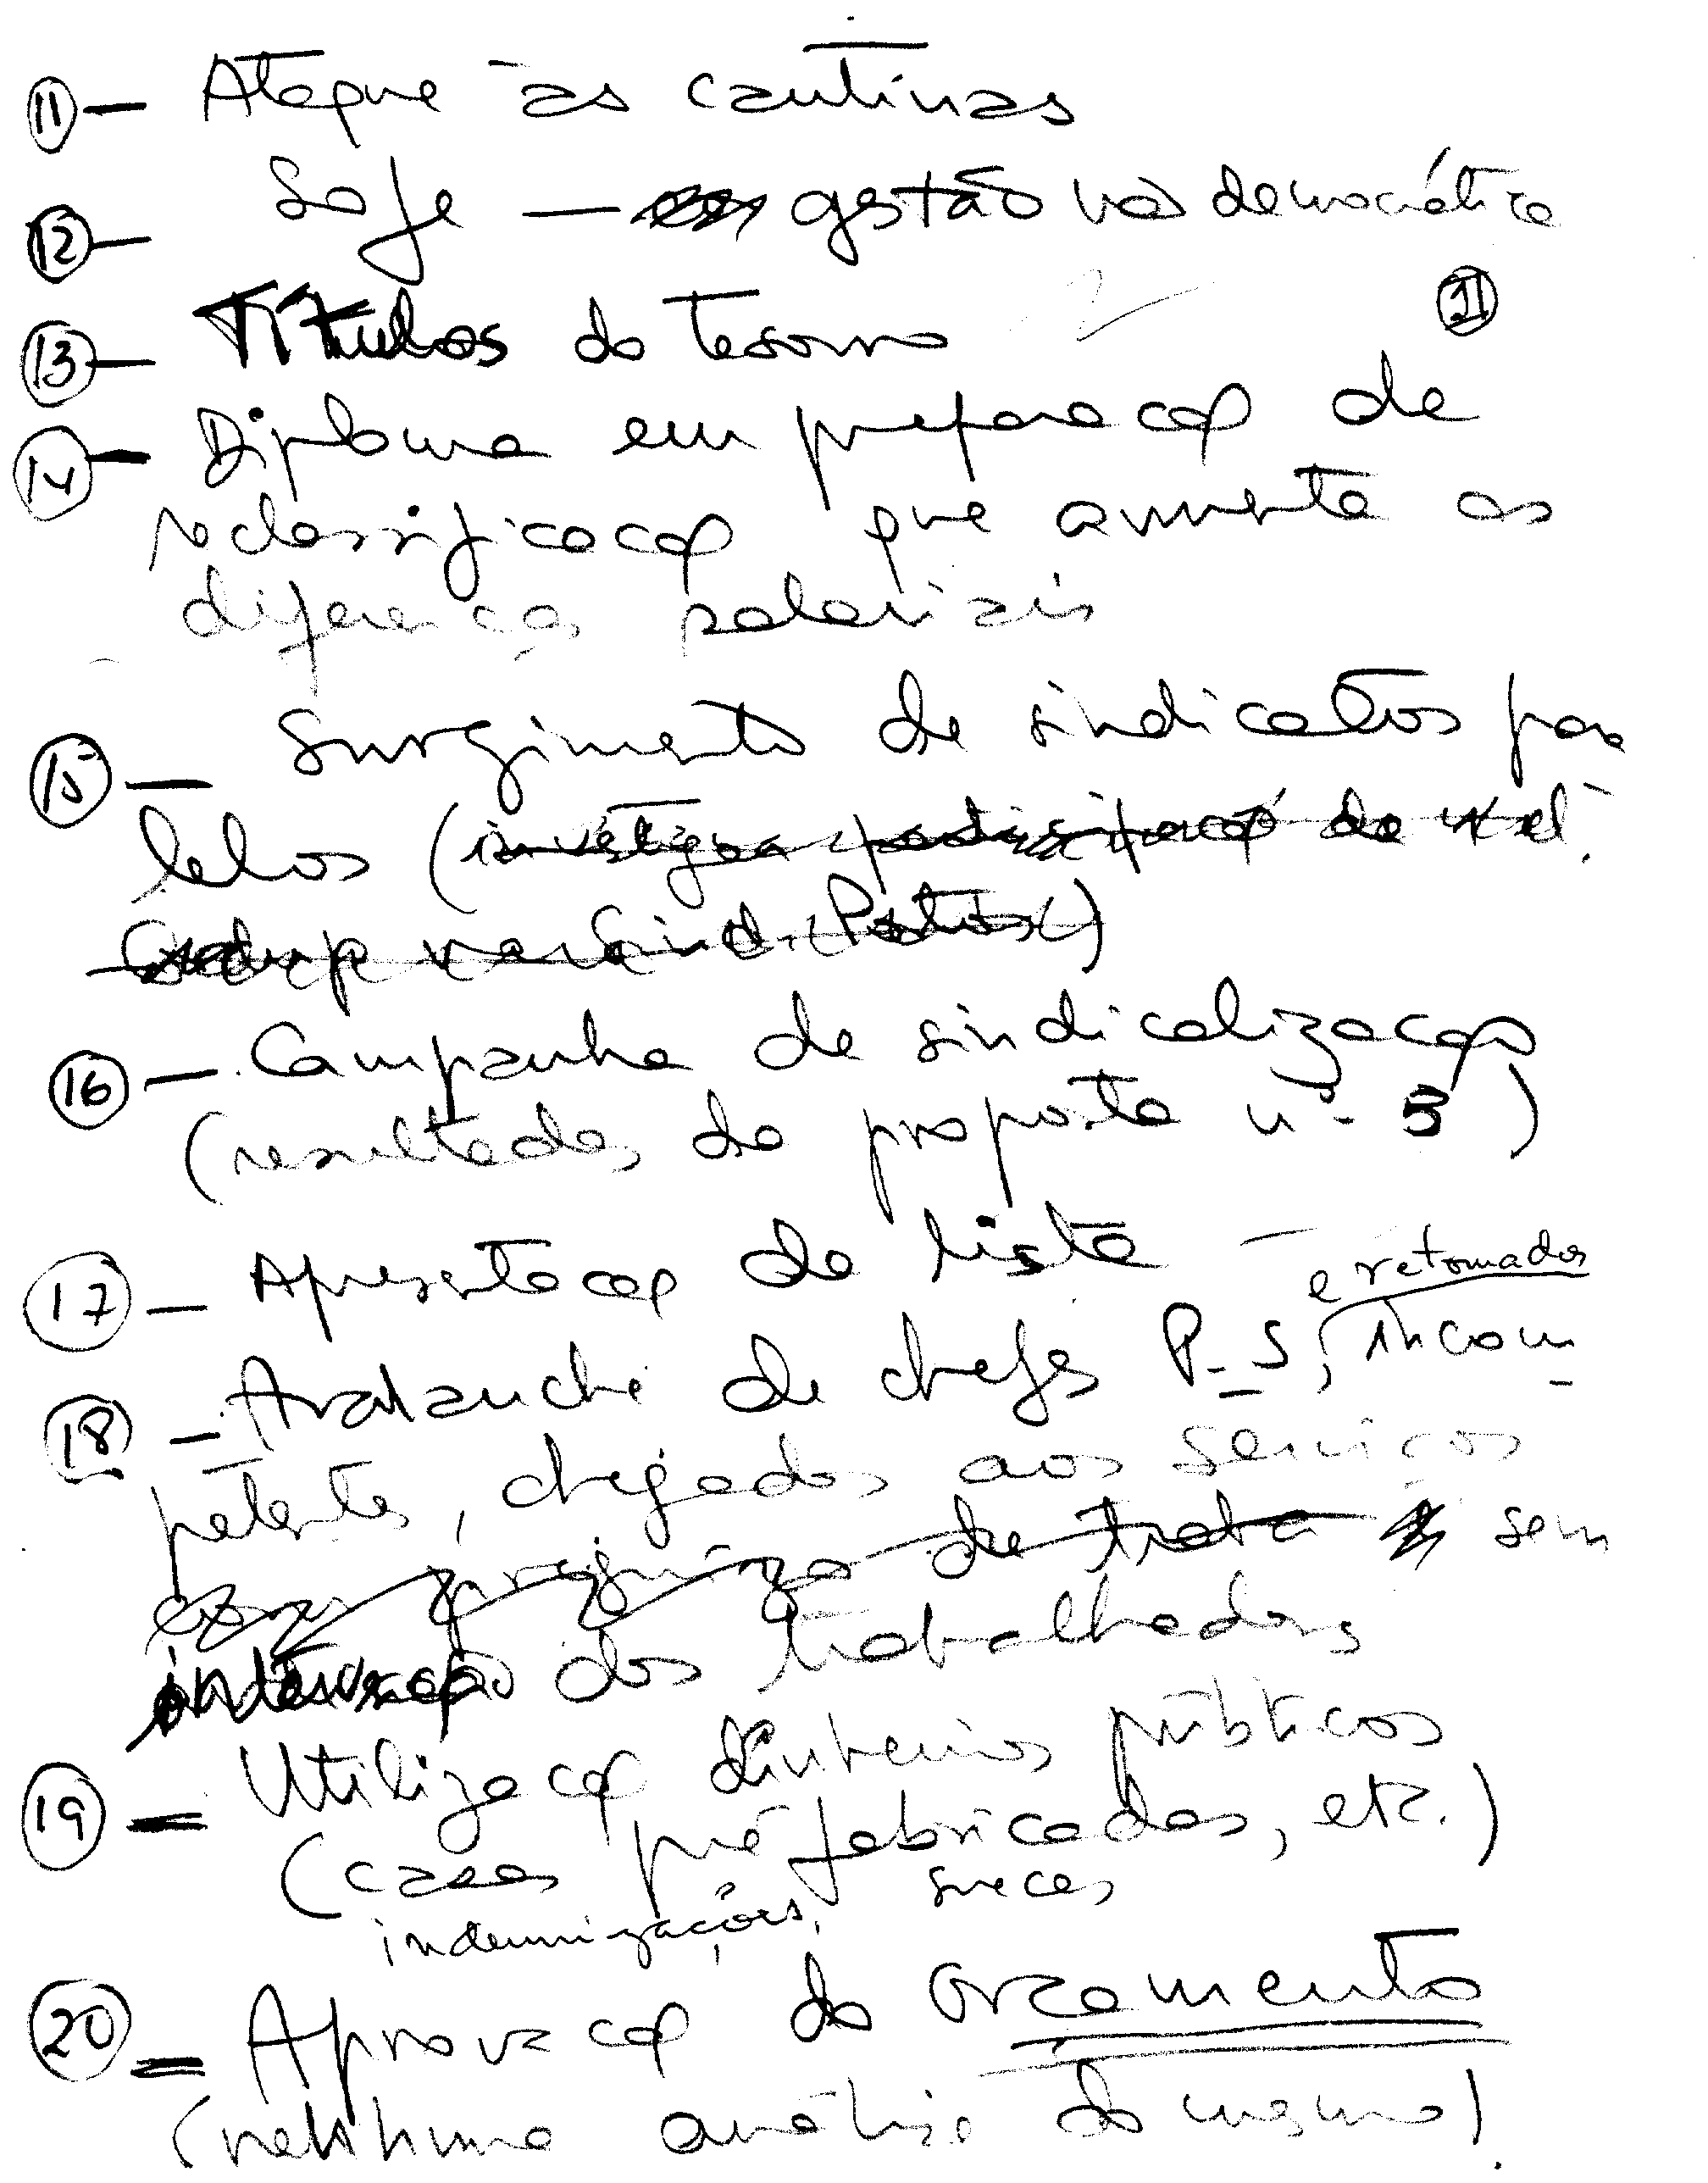 11 — Ataque às cantinas
12 — Sofe — gestão não democrática
II
13 — Títulos do tesouro
14 — Diploma em preparação de
reclassificação que aumenta as
diferenças salariais
15 — Surgimento de sindicatos para
lelos (investigar participação do
na Sind. (Potros))
16 — Campanha de sindicalização
(resultados da proposta nº 5)
17 — Apresentação da lista
e retornados
18 — Avalanche de chefes P-S, incom
petentes, chegados aos serviços
sem
intervenção dos trabalhadores
19 — Utilização dinheiros públicos
(casas pré fabricadas, etc.)
indemnizações, suecas
20 — Aprovação do Orçamento
(nenhuma análise do mesmo)